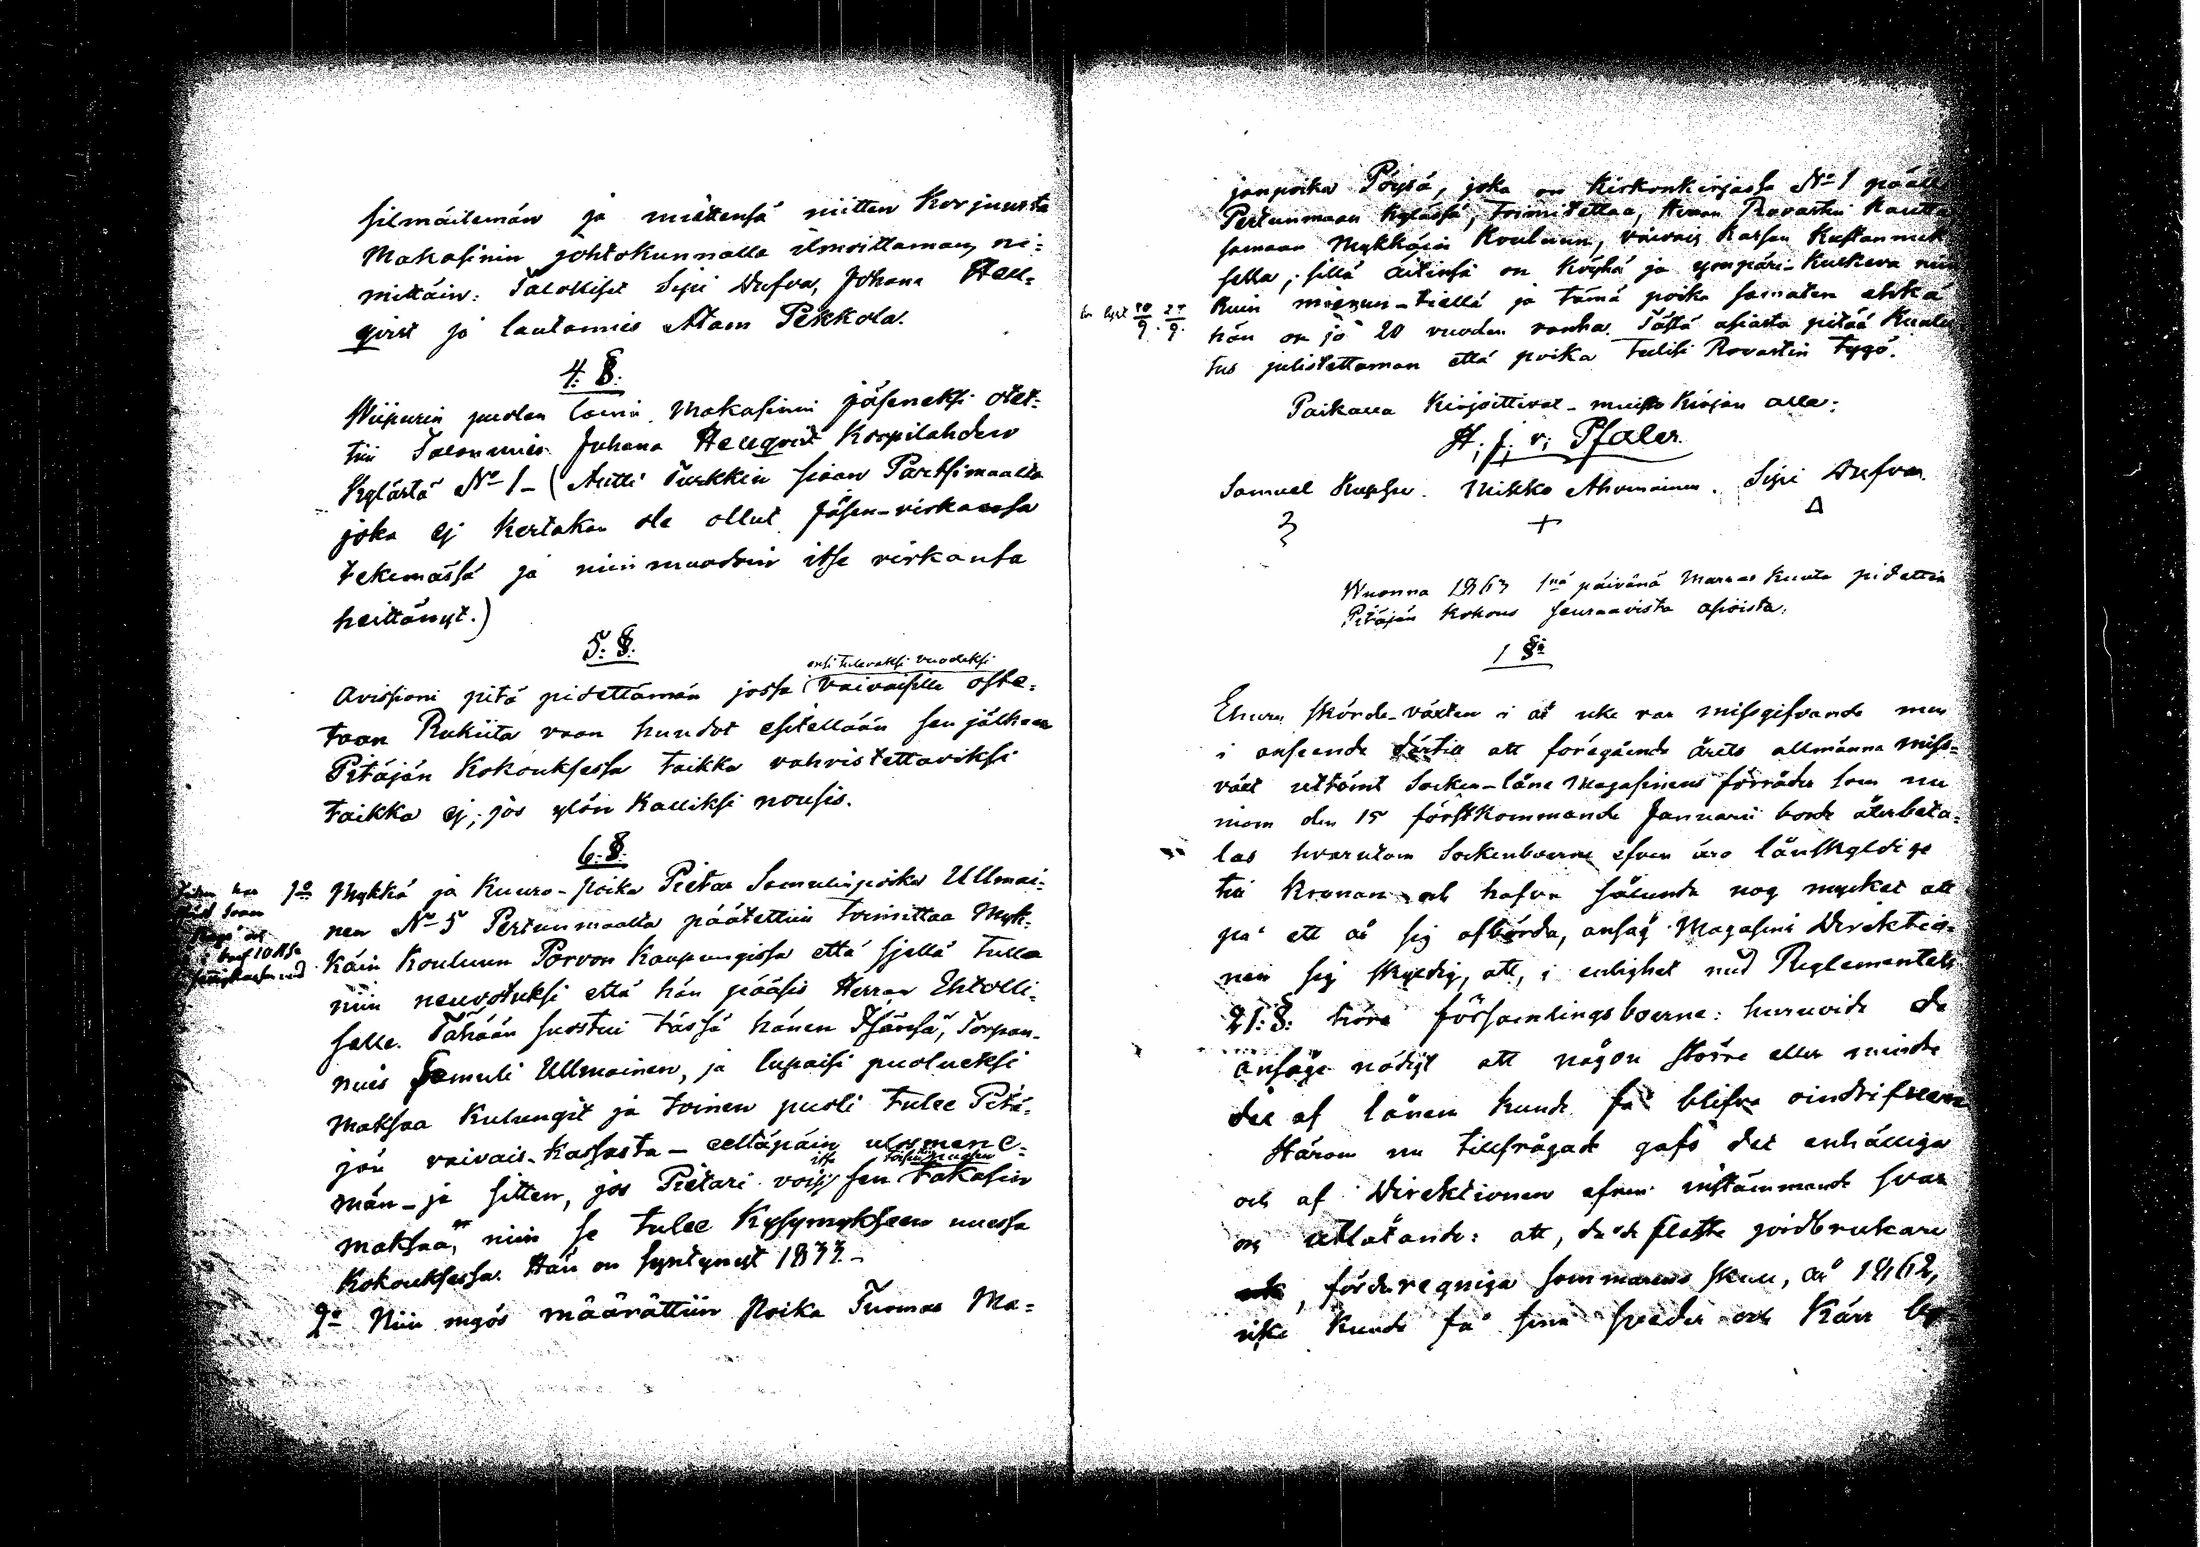 silmäilemän ja mielensä niitten Korjuusta
Makasinin johtokunnalle ilmoittaman, ni=
mittäin: Talolliset Sipi Dufva, Johana Hell=
qvist ja lautamies Atam Pekkola.
4: §:
Wiipurin puolen Laina Makasinin jäseneksi otet=
tiin Talonmies Juhana Hellqvist Korpilahden
Kylästä No 1 - (Antti Turkkin siaan Partsimaalta
joka ej Kertakan ole ollut jäsen-virkaansa
tekemässä ja niin muodoin itse virkansa
heittänyt.)
5: §:
ensi tulevaksi vuodeksi
Avisioni pitä pidettämän jossa vaivaisille oste=
taan Rukiita vaan huudot esitellään sen jälkeen
Pitäjän Kokouksessa taikka vahvistettaviksi
taikka ej, jos ylön Kalliiksi nousis.
6: §:
1o Mykkä ja Kuuro-poika Pietar Samulinpoika Ullmai=
nen No 5 Pertunmaalta päätettiin toimittaa Myk=
käin Kouluun Porvon Kaupungissa että sjellä tulla
niin neuvotuksi että hän pääsis Herran Ehtolli=
selle. Tähään suostui tässä hänen Isänsä, Torpan=
mies Samuli Ullmainen, ja lupaisi puolueksi
maksaa Kulungit ja toinen puoli tulee Pitä=
jän vaivais-Kassasta - eeltäpäin ulosmene=
män - ja sitten, jos Pietari voisi itse sen takasin
maksaa, niin se tulee Kysymykseen muessa
Kokouksessa. Hän on syntynyt 1833.-
2o Niin myös määrättiin poika Tuomas Ma=
janpoika Pöysä, joka on Kirkonkirjassa No 1 pääll
Pertunmaan Kylässä, toimitettaa, Herran Rovastin Kautta
samaan Mykkäin Kouluun, vaivais Kassan Kustannuk
sella, sillä äitinsä on Köyhä ja ympäri-Kulkeva niin
Kuin mieron-tiellä ja tämä poika samaten ehkä
hän on jo 20 vuoden vanha. Tästä asiasta pitää Kuulu
tus julistettaman että poika tulisi Rovastin tygö.
Paikalla Kirjoittivat - muisto Kirjan alla:
H. J. v: Pfaler.
Samuel Kuppe. Mikko Ahvenainen. Sipi Dufva.
Wuonna 1863 1nä päivänä Marras Kuuta pidettiin
Pitäjän Kokous seuraavista asioista.
1 §:
Ehuru skörde-växten i år icke var missgifvande men
i anseende dertill att föregående årets allmänna miss=
växt uttömt Socken-låne Magasinens förråder som nu
inom den 15 förstkommande Januarii borde återbeta=
las hvarutom Sockenboerne äfven äro lånskyldige
till Kronan och hafva sålunda nog mycket att
på ett år sig afbörda, ansåg Magasins Direktio=
nen sig skyldig, att, i enlighet med Reglementets
21: §: höra församlingsboerne: huruvida de
ansåge nödigt att någon större eller mindre
del af lånen kunde få blifva oindrifven
Härom nu tillfrågade gafs det enhälliga
och af Direktionen äfven instämmande svar
och utlåtande: att, då de flesta jordbrukare
, för de regniga sommarens skull, år 1862,
icke kunde få sina svedier och Kärr be